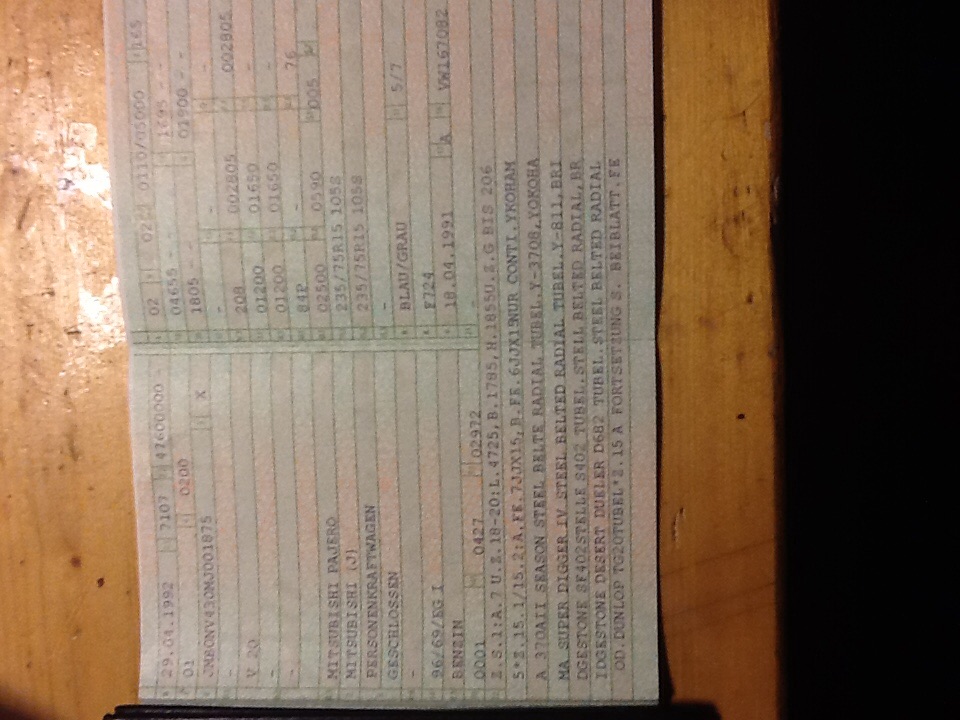 29.04.1992 7107 47600000
01 0200
JMB0NV430MJ001875 X
-
V 20
-
-
MITSUBISHI PAJERO
MITSUBISHI (J)
PERSONENKRAFTWAGEN
GESCHLOSSEN
-
96/69/EG I
BENZIN
0001 0427 02972
02 0110/05000 165
04655 - 1695 -
1805 - 01900 - -
- - -
208 002805 002805
01200 01650 -
01200 01650 -
84P - 76
02500 0590 D05
235/75R15 105S
235/75R15 105S
-
BLAU/GRAU 5/7
F724
18.04.1991 A VW167082
-
Z.S.1:A.7 U.Z.18-20:L.4725,B.1785,H.1855U.Z.G BIS 206
5*Z.15.1/15.2:A.FE.7JJX15,B.FE.6JJX15NUR CONTI.YKOHAM
A 370AII SEASON STEEL BELTE RADIAL TUBEL.Y-370S,YOKOHA
MA SUPER DIGGER IV STEEL BELTED RADIAL TUBEL.Y-811,BRI
DGESTONE SF402STELLE S402 TUBEL.STELL BELTED RADIAL,BR
IDGESTONE DESERT DUELER D682 TUBEL.STEEL BELTED RADIAL
OD.DUNLOP TG20TUBEL*Z.15 A FORTSETZUNG S. BEIBLATT.FE